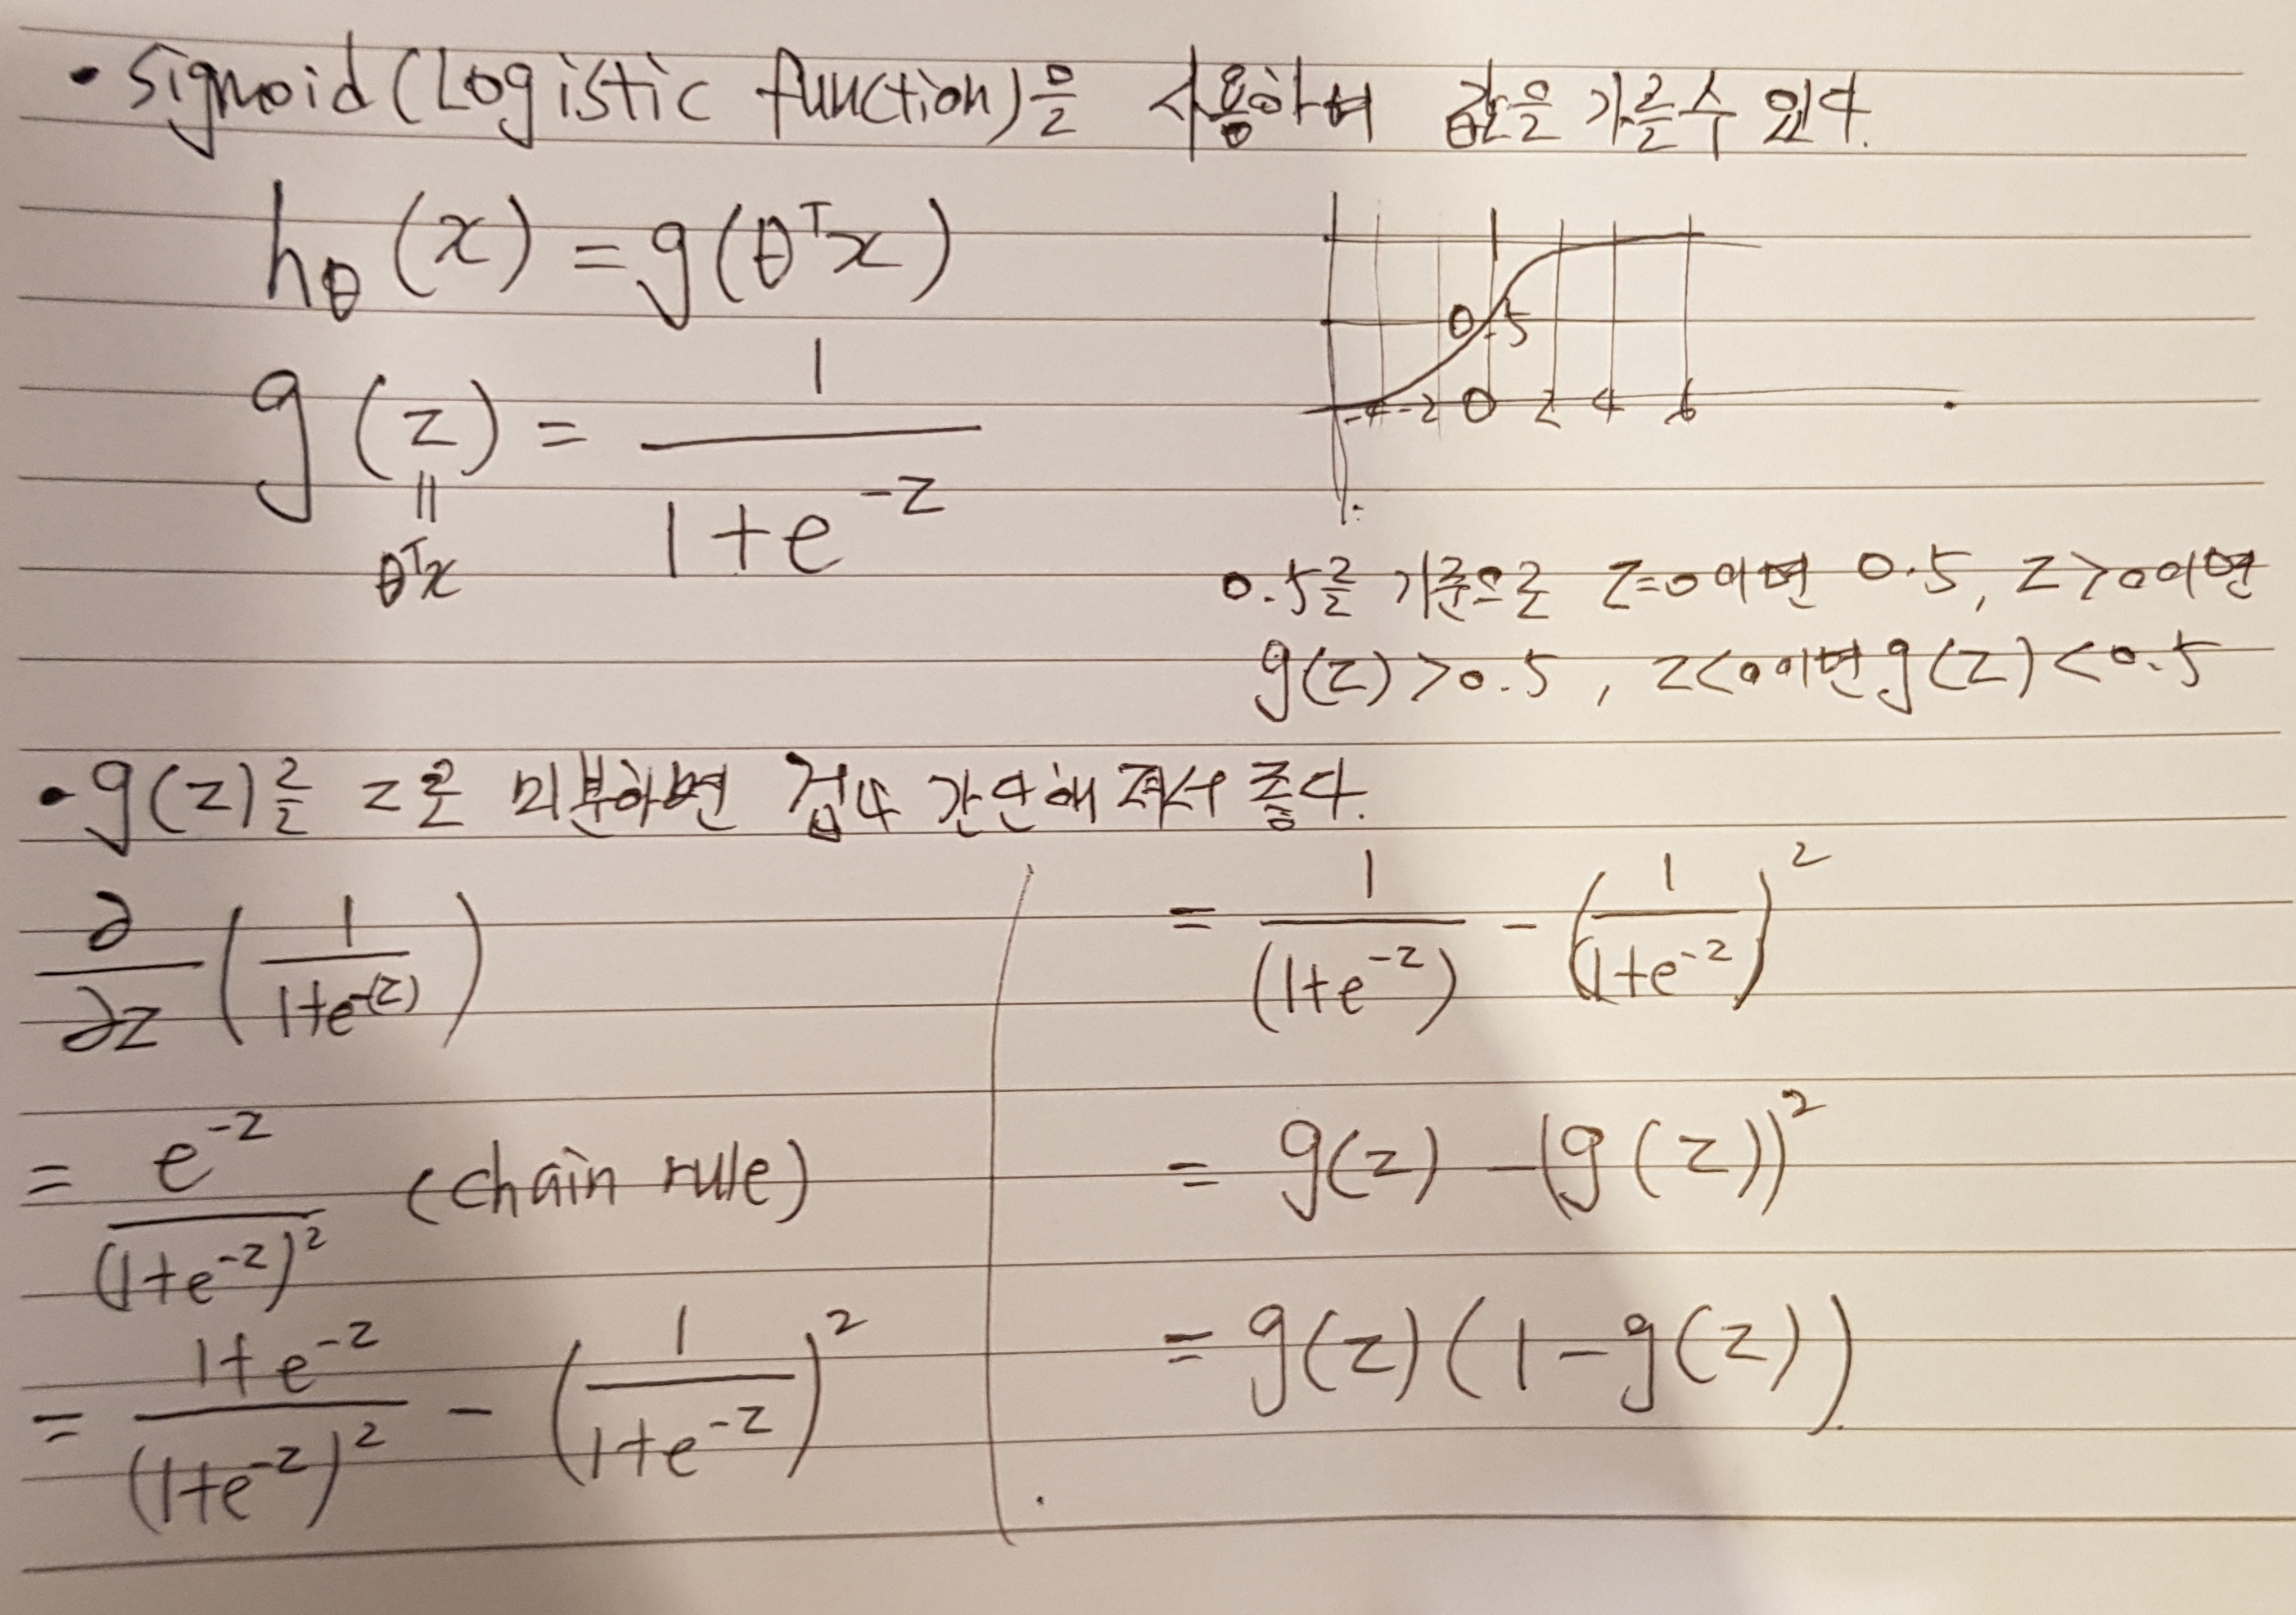 • Sigmoid (Logistic function)은 사용하여 값을 가를 수 있다.
hθ(x) = g(θᵀx)
g(z) = 1 / (1+e^-z)
||
θᵀx
1
0.5
-4 -2 0 2 4 6
0.5를 기준으로 z=0이면 0.5, z>0이면
g(z)>0.5, z<0이면 g(z)<0.5
• g(z)를 z로 미분하면 겁나 간단해져서 좋다.
∂/∂z (1/(1+e^-(z)))
= e^-z/(1+e^-z)² (chain rule)
= (1+e^-z)/(1+e^-z)² - (1/(1+e^-z))²
= 1/(1+e^-z) - (1/(1+e^-z))²
= g(z) - (g(z))²
= g(z)(1-g(z))